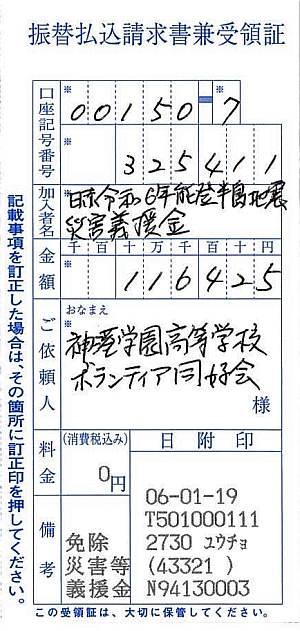 振替払込請求書兼受領証
口座記号番号
※
00150=7
※
325411
加入者名
※
日赤令和6年能登半島地震
災害義援金
金額
千百十万千百十円
※
116425
ご依頼人
おなまえ
※
神愛学園高等学校
ボランティア同好会
様
料金
(消費税込み)
0円
日附印
備考
免除
災害等
義援金
06-01-19
T501000111
2730 ユウチョ
(43321 )
N94130003
記載事項を訂正した場合は、その箇所に訂正印を押してください。
この受領証は、大切に保管してください。